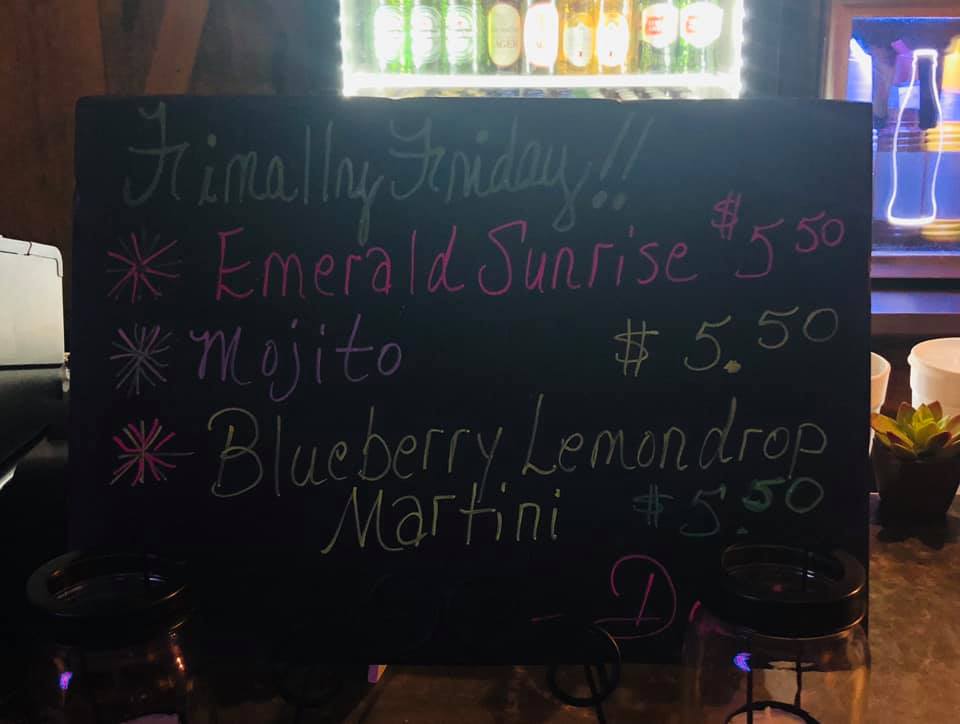 Finally Friday!!
Emerald Sunrise $5 50
Mojito $5.50
Blueberry Lemondrop
Martini $5.50
- D
LAGER